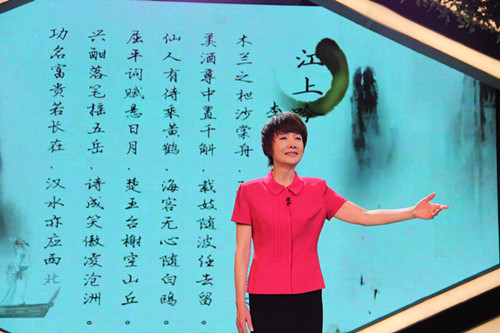 江上吟
李
木兰之枻沙棠舟，
美酒尊中置千斛，载妓随波任去留。
仙人有待乘黄鹤，海客无心随白鸥。
屈平词赋悬日月，楚王台榭空山丘。
兴酣落笔摇五岳，诗成笑傲凌沧洲。
功名富贵若长在，汉水亦应西北